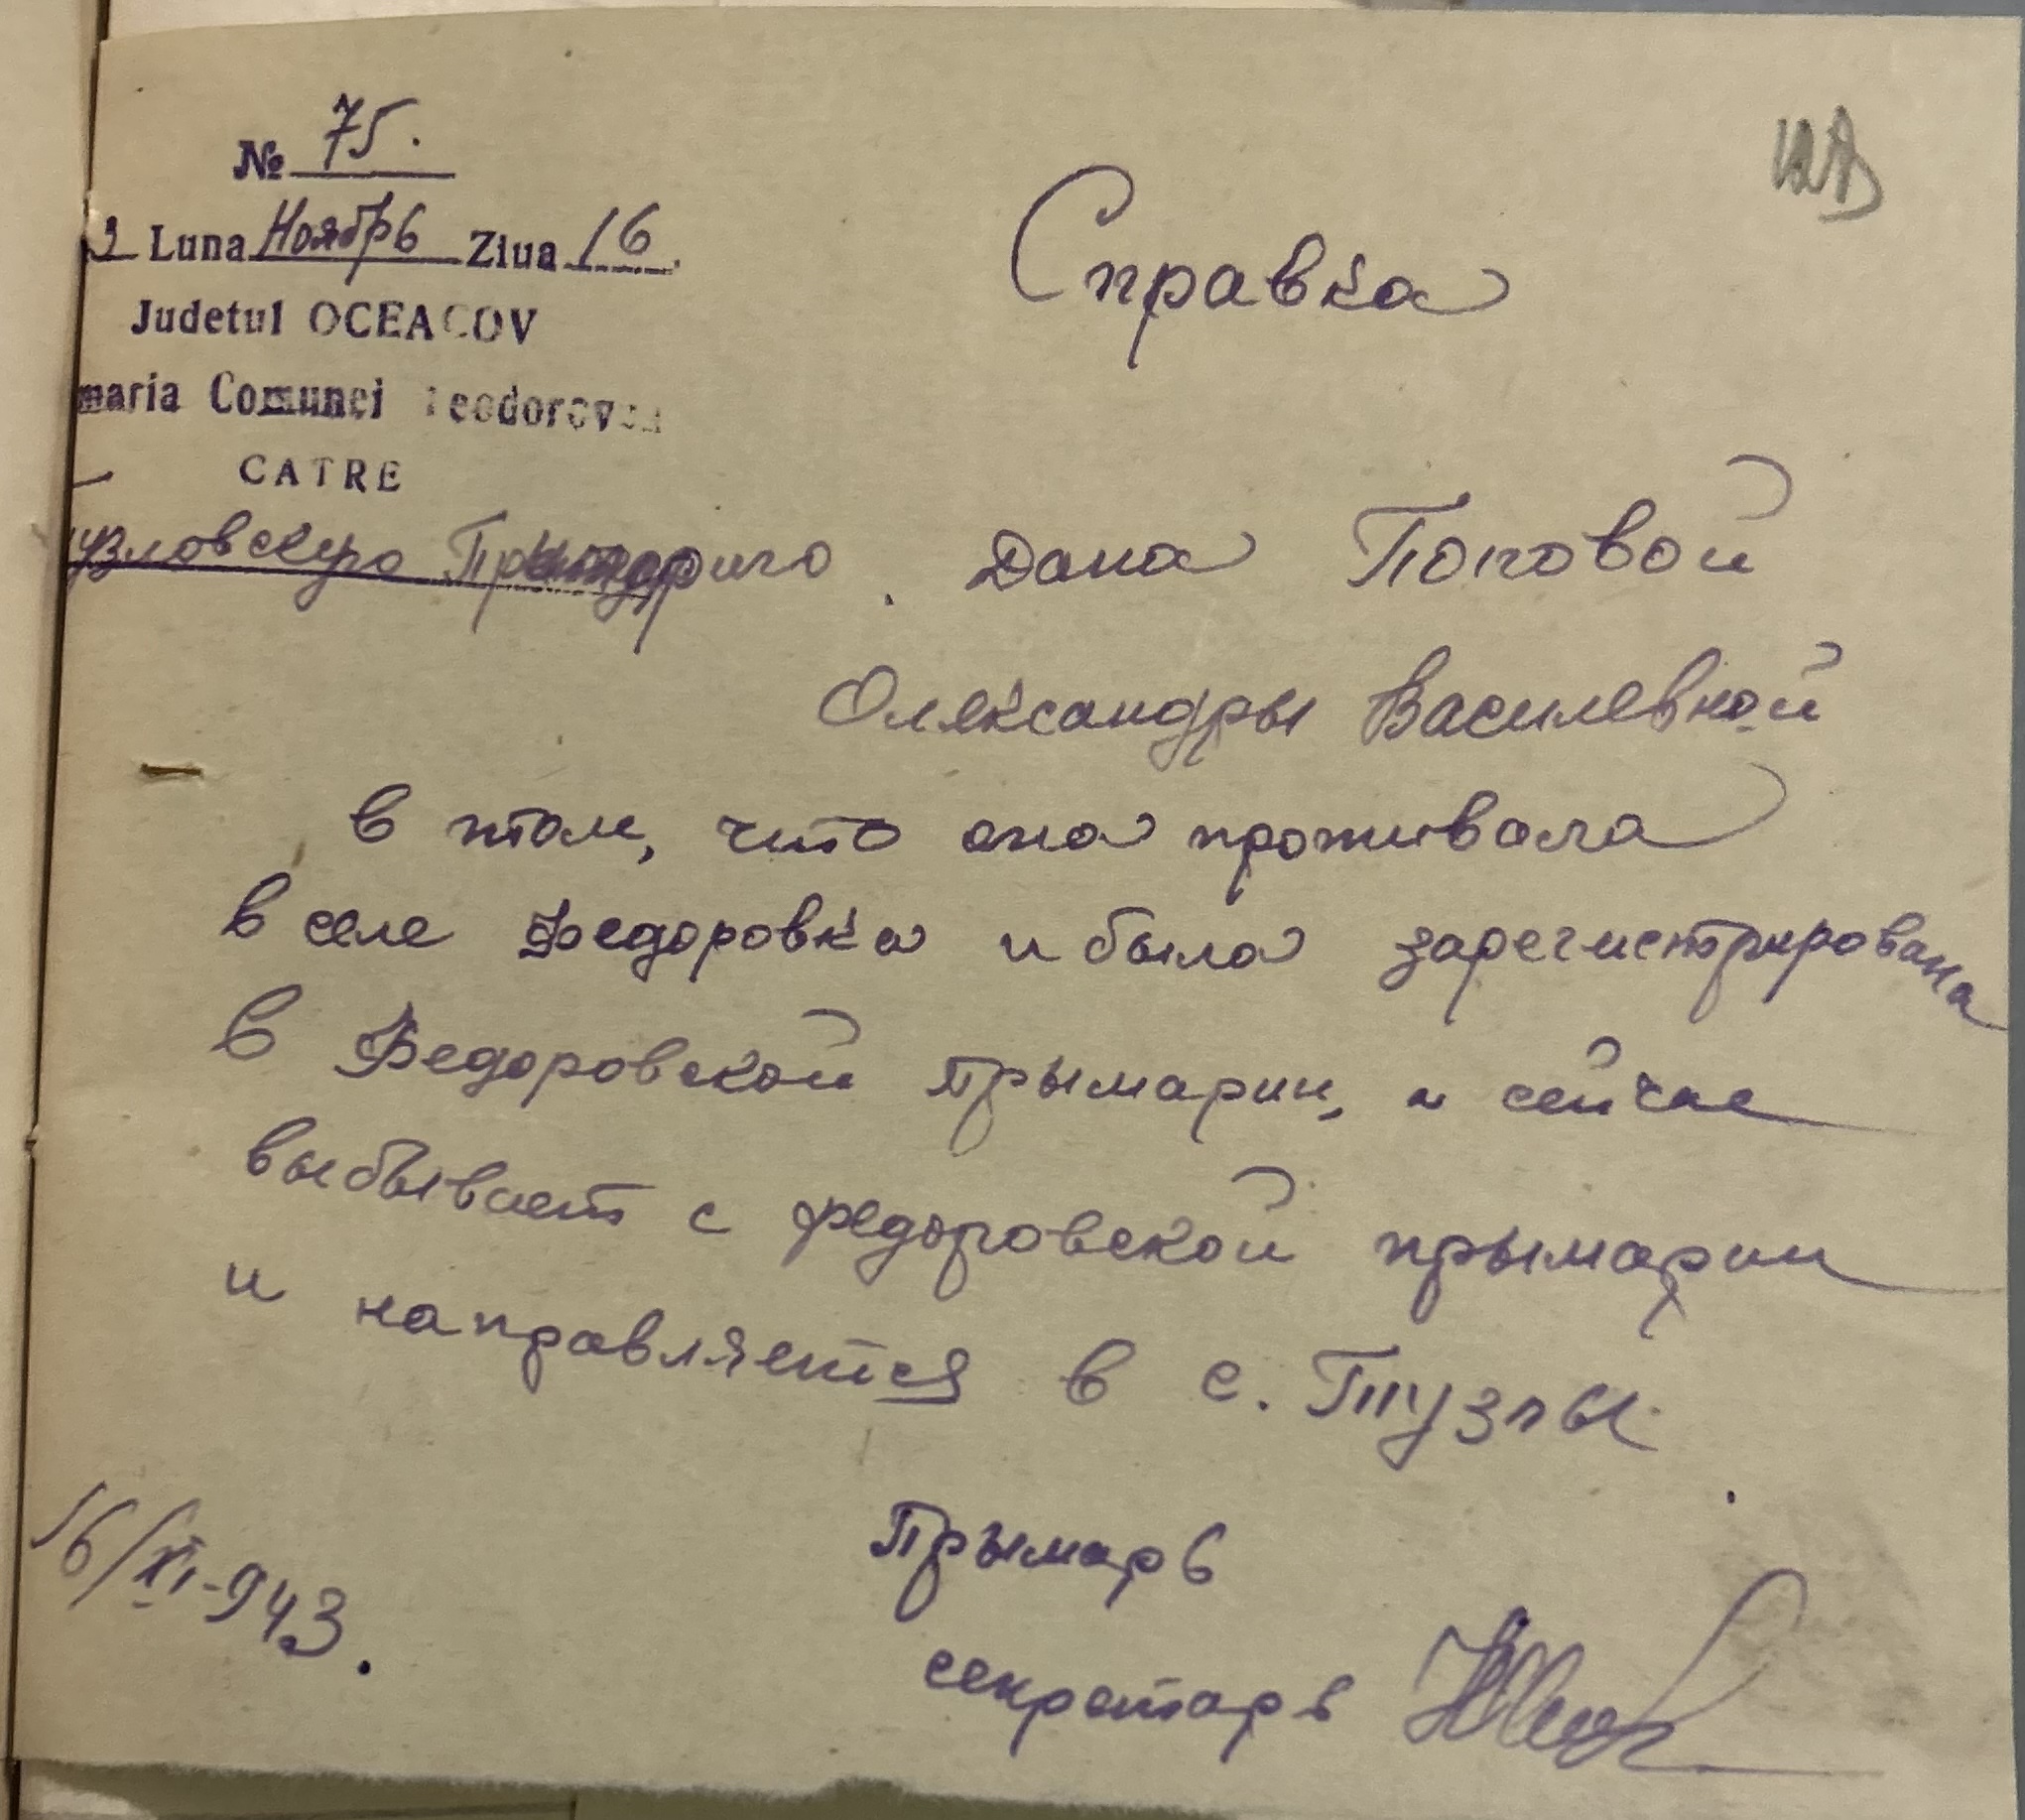 № 75.
Luna Ноябрь Ziua 16.
Judetul OCEACOV
maria Comunei Teodorovca
CATRE
узловскую Примарию
Справка
Дана Поповой
Олександры Василевной
в том, что она проживала
в селе Федоровка и была зарегистрирована
в Федоровской прымарии, и сейчас
выбывает с федоровской прымарии
и направляется в с. Тузлы.
16/XI-943.
Прымарь
секретарь